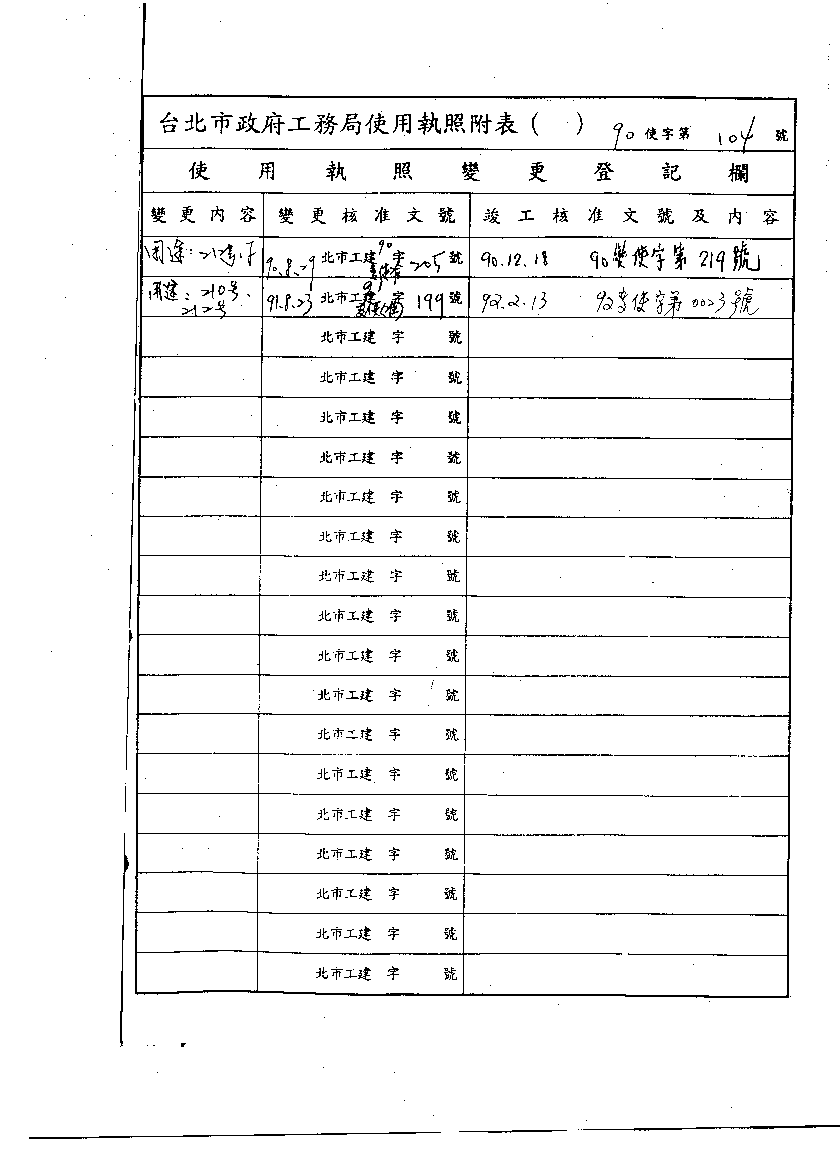 台北市政府工務局使用執照附表( ) 90 使字第 104 號
使用執照變更登記欄
變更內容 變更核准文號 竣工核准文號及內容
用途:212号 90.8.29 北市工建 90 字 205 號 90.12.18 90變使字第219號
用途:210号、 91.8.23 北市工建 91 字 199 號 92.2.13 92變使字第0023號
212号
北市工建 字 號
北市工建 字 號
北市工建 字 號
北市工建 字 號
北市工建 字 號
北市工建 字 號
北市工建 字 號
北市工建 字 號
北市工建 字 號
北市工建 字 號
北市工建 字 號
北市工建 字 號
北市工建 字 號
北市工建 字 號
北市工建 字 號
北市工建 字 號
北市工建 字 號